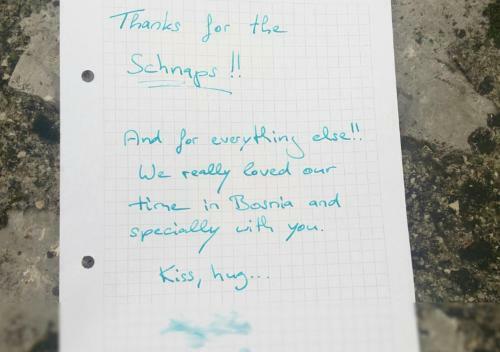 Thanks for the
Schnaps!!
And for everything else!!
We really loved our
time in Bosnia and
specially with you.
Kiss, hug...